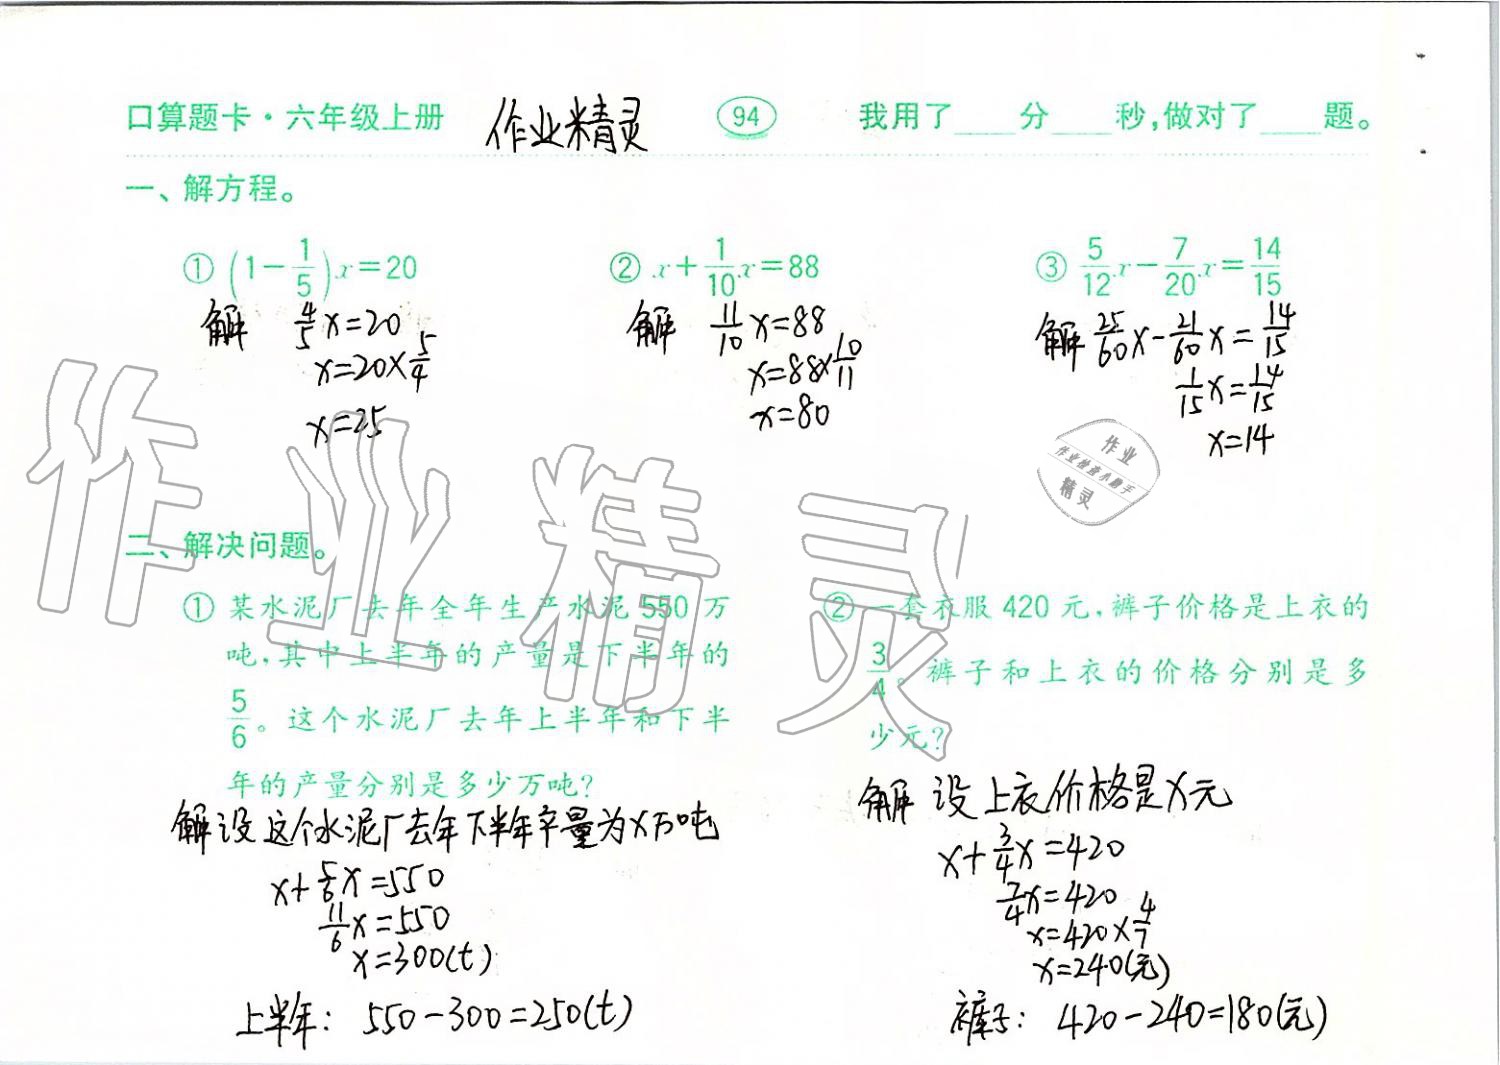 口算题卡·六年级上册 作业精灵 94 我用了____分____秒,做对了____题。
一、解方程。
① (1-1/5)x=20 ② x+1/10x=88 ③ 5/12x-7/20x=14/15
解 4/5x=20 解 11/10x=88 解 25/60x-21/60x=14/15
x=20×5/4 x=88×10/11 1/15x=14/15
x=25 x=80 x=14
作业
作业检查小助手
精灵
作业精灵
二、解决问题。
① 某水泥厂去年全年生产水泥550万
吨,其中上半年的产量是下半年的
5/6。这个水泥厂去年上半年和下半
年的产量分别是多少万吨?
解设这个水泥厂去年下半年产量为x万吨
x+5/6x=550
11/6x=550
x=300(t)
上半年: 550-300=250(t)
② 一套衣服420元,裤子价格是上衣的
3/4。裤子和上衣的价格分别是多
少元?
解 设上衣价格是x元
x+3/4x=420
7/4x=420
x=420×4/7
x=240(元)
裤子: 420-240=180(元)